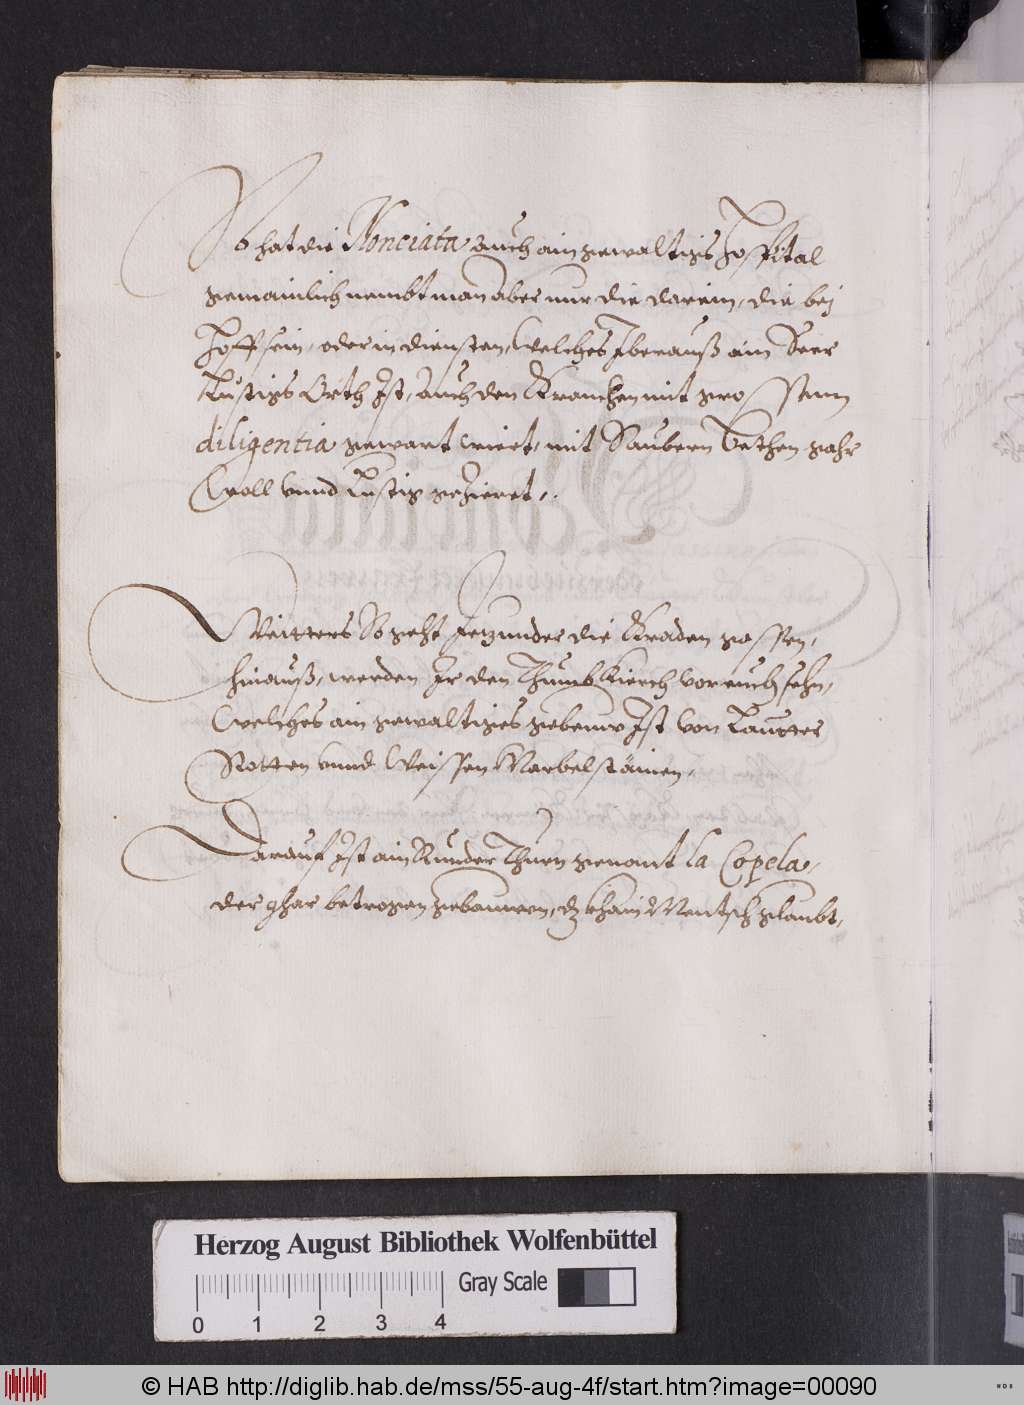 So hat die Nonciata auch ain gewaltigs Hospital
gemainlich nembt man aber nur die darein, die bej
Hoff sein, oder in diensten, Welches Iberauß ain Seer
Lustigs Orth Ist, Auch den Kranckhen mit grossem
diligentia gewart wiert, mit Saubern Bethen gahr
Woll vnnd Lustig gezieret.
Weitters So geht Jezunder die Geraden gassen,
hinauß, werden Ir den Thumb Kierch vor euch sehn,
Welches ain gewaltiges gebeuw Ist von Lautter
Rotten vnnd Weissen Marbelstainen.
Darauf Ist ain Runder Thurn genant la Copela,
der ghar betrogen gebauwen, dz khain Mentsch glaubt,
Herzog August Bibliothek Wolfenbüttel
Gray Scale
0 1 2 3 4
© HAB http://diglib.hab.de/mss/55-aug-4f/start.htm?image=00090